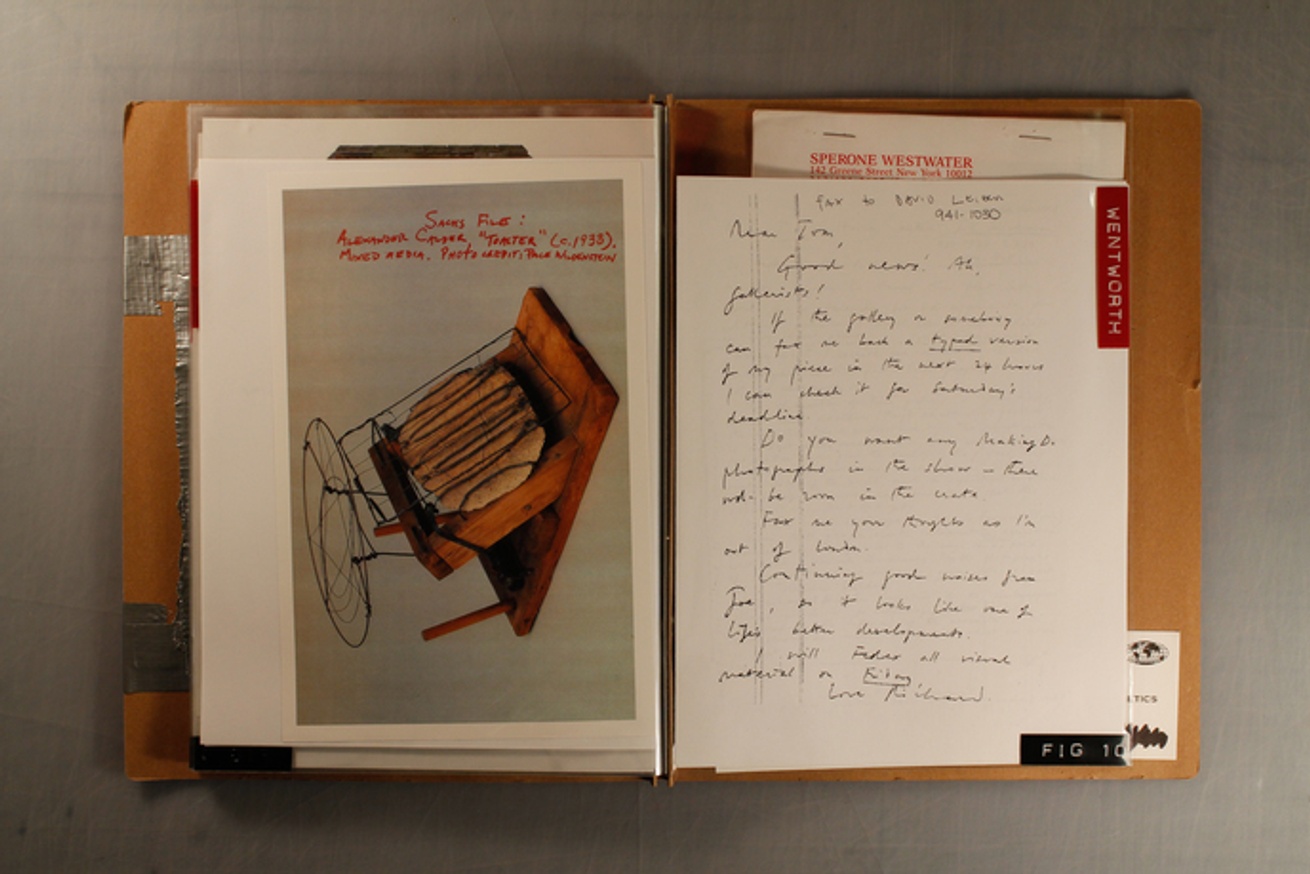 SACHS FILE:
ALEXANDER CALDER, "TOASTER" (c.1938).
MIXED MEDIA. PHOTO CREDIT: PACE WILDENSTEIN
SPERONE WESTWATER
142 Greene Street New York 10012
WENTWORTH
Fax to DAVID
941-1030
Dear Tom,
Good news! Ah,
gallerists!
If the gallery or somebody
can fax me back a typed version
of my piece in the next 24 hours
I can check it for Saturday's
deadline.
Do you want any Making Do
photographs in the show - there
be room in the crate.
Fax me your thoughts as I'm
out of London.
Continuing good noises from
Joe, so it looks like one of
life's better developments.
I will Fedex all visual
material on Friday.
Love Richard.
TICS
FIG 10